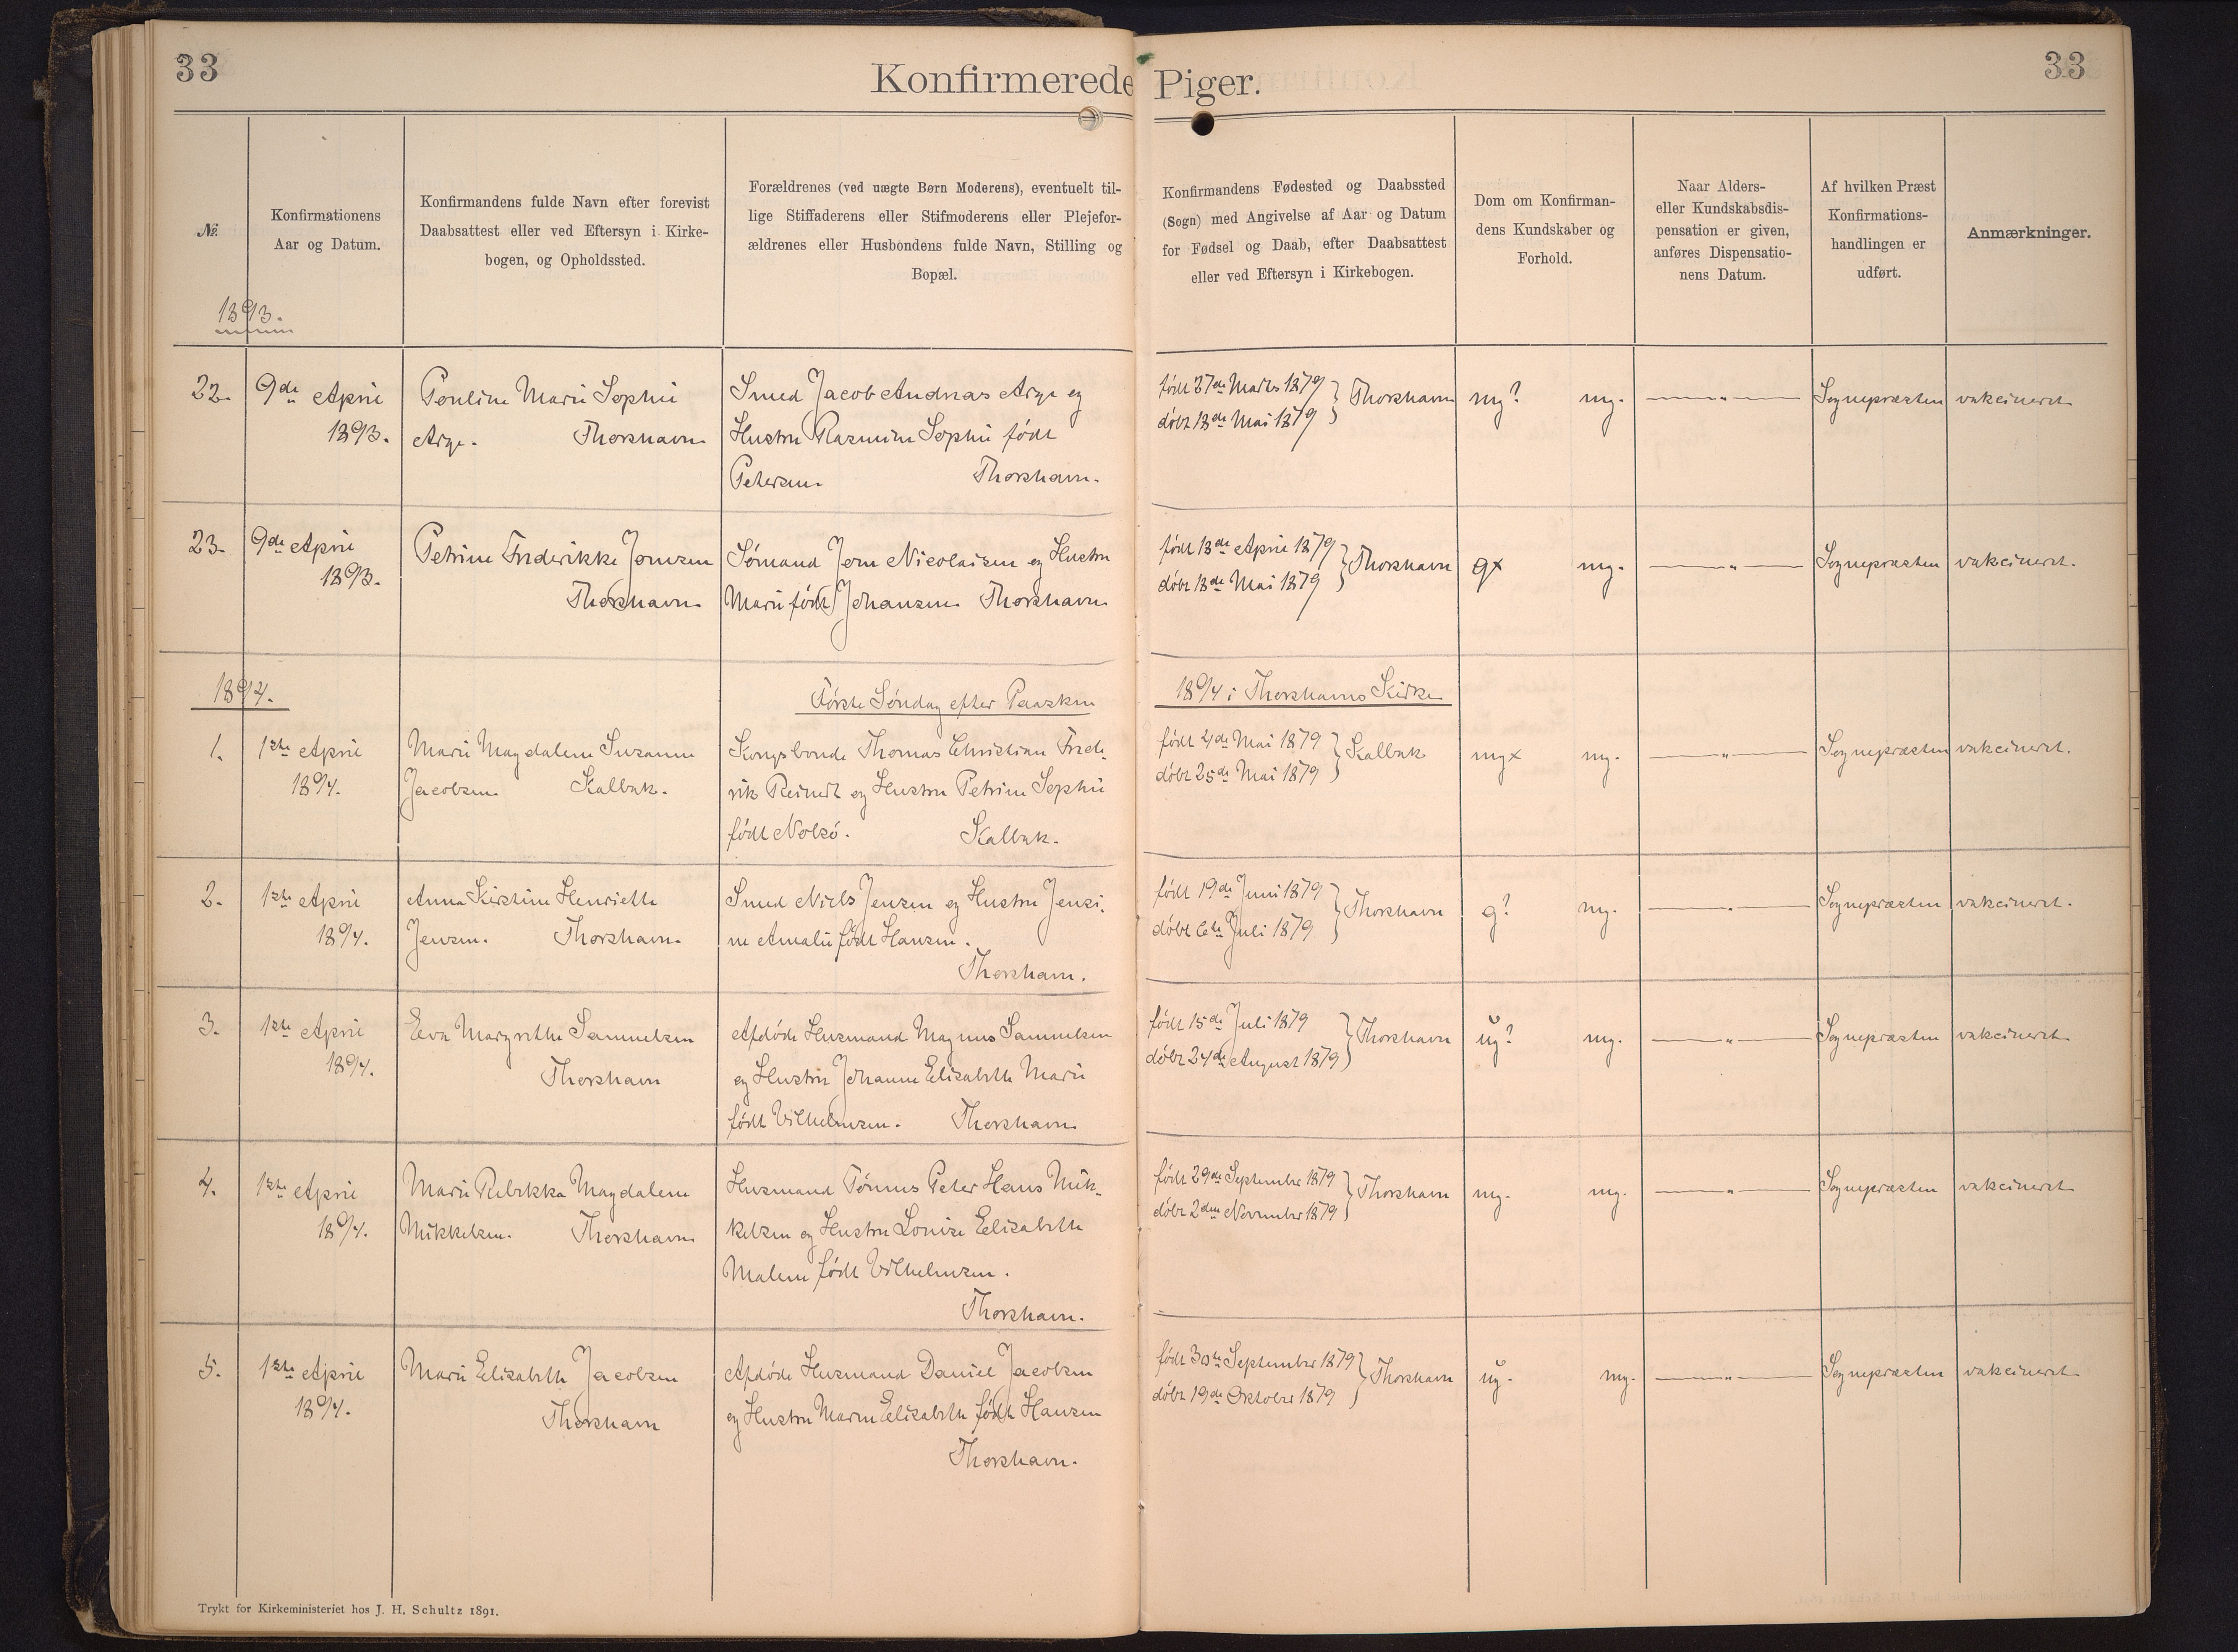 33
Konfirmerede Piger.
33
№
Konfirmationens
Aar og Datum.
Konfirmandens fulde Navn efter forevist
Daabsattest eller ved Eftersyn i Kirke-
bogen, og Opholdssted.
Forældrenes (ved uægte Børn Moderens), eventuelt til-
lige Stiffaderens eller Stifmoderens eller Plejefor-
ældrenes eller Husbondens fulde Navn, Stilling og
Bopæl.
Konfirmandens Fødested og Daabssted
(Sogn) med Angivelse af Aar og Datum
for Fødsel og Daab, efter Daabsattest
eller ved Eftersyn i Kirkebogen.
Dom om Konfirman-
dens Kundskaber og
Forhold.
Naar Alders-
eller Kundskabsdis-
pensation er given,
anføres Dispensatio-
nens Datum.
Af hvilken Præst
Konfirmations-
handlingen er
udført.
Anmærkninger.
1893.
22.
9de April
1893.
Pouline Marie Sophie
Arge. Thorshavn
Smed Jacob Andreas Arge og
Hustru Rasmine Sophie født
Petersen Thorshavn.
født 27de Marts 1879
døbt 18de Mai 1879
Thorshavn
mg? mg.
Sognepræsten
vakcineret
23.
9de April
1893.
Petrine Frederikke Joensen
Thorshavn
Sømand Joen Nicolaisen og Hustru
Marie født Johansen Thorshavn
født 18de April 1879
døbt 18de Mai 1879
Thorshavn
g× mg.
Sognepræsten
vakcineret.
1894.
Første Søndag efter Paasken
1894 i Thorshavns Kirke
1.
1ste April
1894.
Marie Magdalene Susanne
Jacobsen Kalbak.
Kongsbonde Thomas Christian Frede-
rik Reinert og Hustru Petrine Sophie
født Nolsø. Kalbak.
født 4de Mai 1879
døbt 25de Mai 1879
Kalbak
mg× mg.
Sognepræsten
vakcineret.
2.
1ste April
1894.
Anna Kirstine Henriette
Jensen. Thorshavn.
Smed Niels Jensen og Hustru Jensi-
ne Amalie født Hansen.
Thorshavn.
født 19de Juni 1879
døbt 6te Juli 1879
Thorshavn
g? mg.
Sognepræsten
vakcineret.
3.
1ste April
1894.
Eva Margrethe Samuelsen
Thorshavn
Afdøde Husmand Magnus Samuelsen
og Hustru Johanne Elisabeth Marie
født Vilhelmsen. Thorshavn
født 15de Juli 1879
døbt 24de August 1879
Thorshavn
ug? mg.
Sognepræsten
vakcineret
4.
1ste April
1894.
Marie Rebekka Magdalene
Mikkelsen. Thorshavn
Husmand Tønnes Peter Hans Mik-
kelsen og Hustru Louise Elisabeth
Malene født Vilhelmsen.
Thorshavn.
født 29de September 1879
døbt 2den November 1879
Thorshavn
mg. mg.
Sognepræsten
vakcineret
5.
1ste April
1894.
Marie Elisabeth Jacobsen
Thorshavn
Afdøde Husmand Daniel Jacobsen
og Hustru Maren Elisabeth født Hansen
Thorshavn.
født 30te September 1879
døbt 19de Oktober 1879
Thorshavn
ug. mg.
Sognepræsten
vakcineret
Trykt for Kirkeministeriet hos J. H. Schultz 1891.